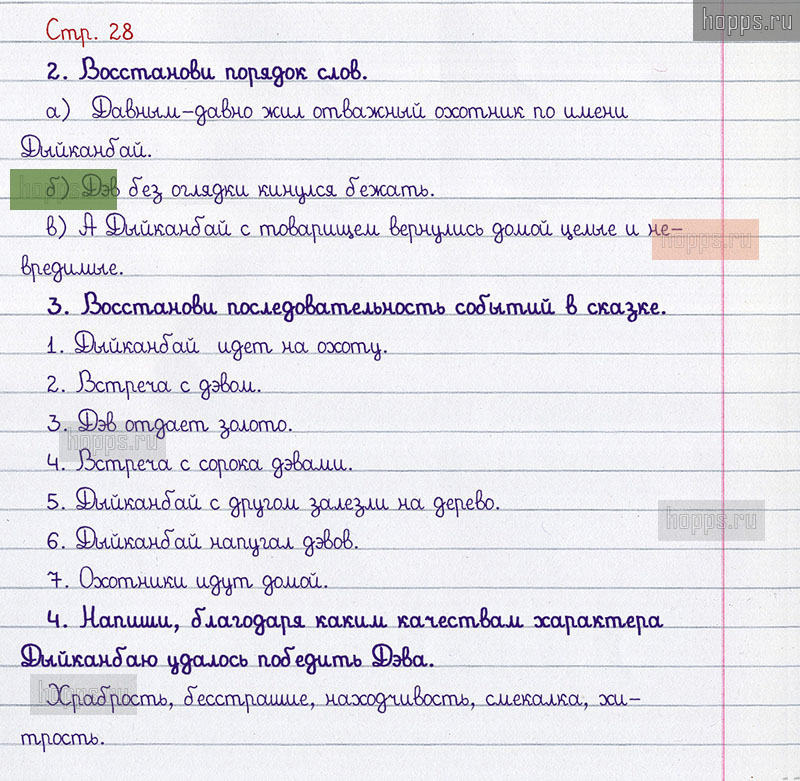 hopps.ru
Стр. 28
2. Восстанови порядок слов.
а) Давным-давно жил отважный охотник по имени
Дыйканбай.
hopps.ru
б) Дэв без оглядки кинулся бежать.
в) А Дыйканбай с товарищем вернулись домой целые и не-
hopps.ru
вредимые.
3. Восстанови последовательность событий в сказке.
1. Дыйканбай идет на охоту.
2. Встреча с дэвом.
3. Дэв отдает золото.
hopps.ru
4. Встреча с сорока дэвами.
5. Дыйканбай с другом залезли на дерево.
hopps.ru
6. Дыйканбай напугал дэвов.
7. Охотники идут домой.
4. Напиши, благодаря каким качествам характера
Дыйканбаю удалось победить Дэва.
hopps.ru
Храбрость, бесстрашие, находчивость, смекалка, хи-
трость.